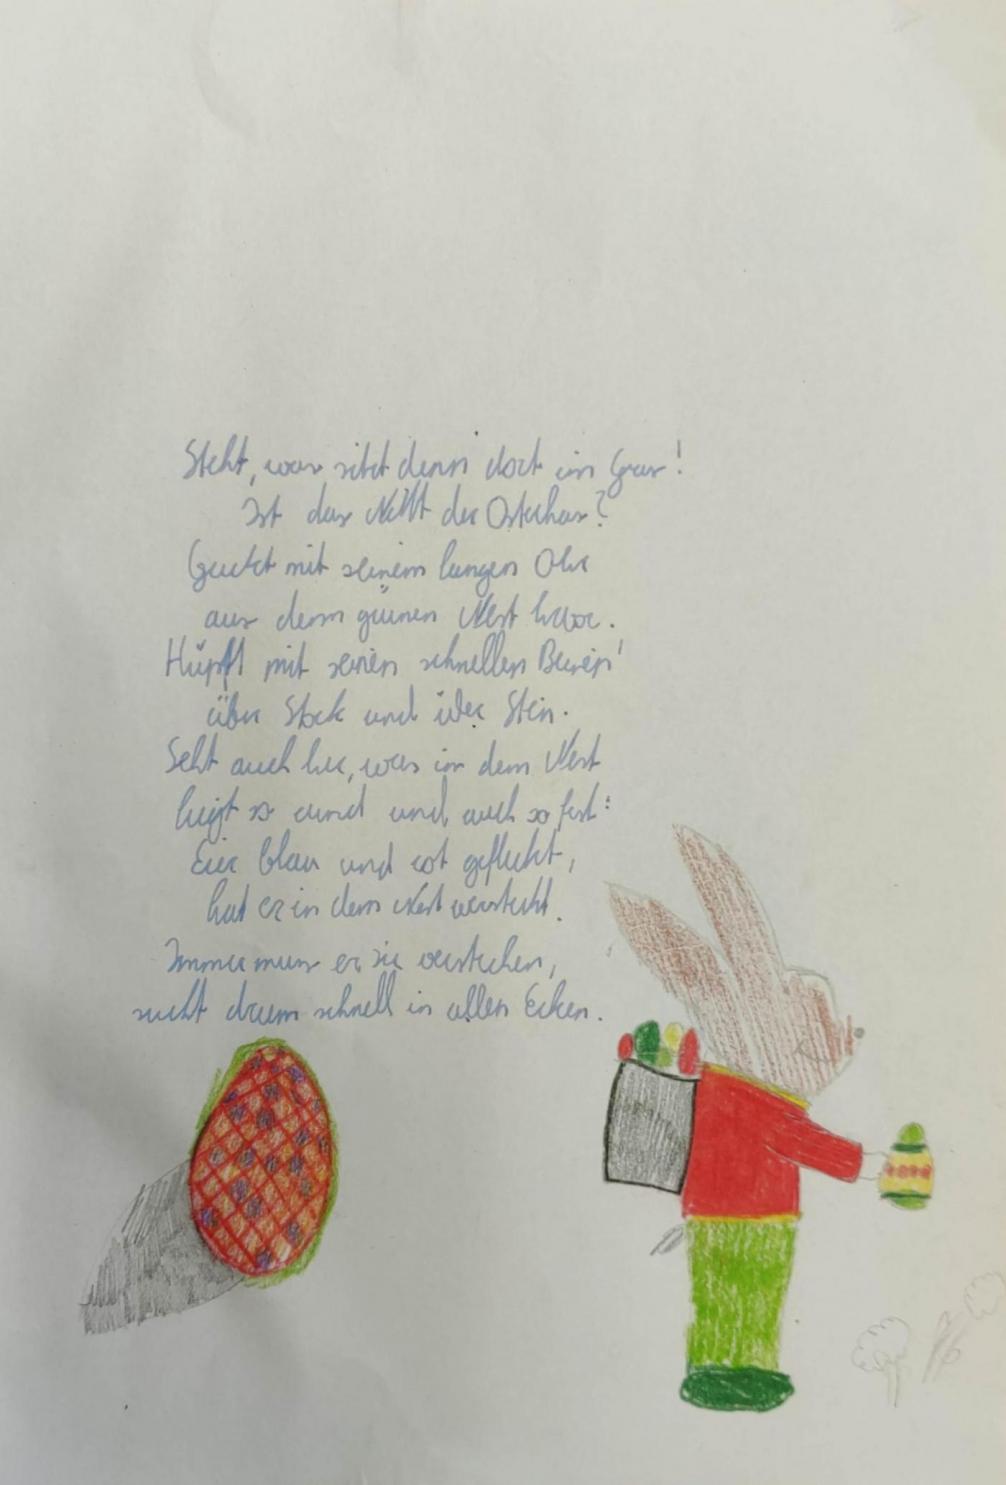 Seht, was sitzt denn dort im Gras!
Ist das nicht der Osterhas?
Guckt mit seinem langen Ohr
aus dem grünen Nest hervor.
Hüpft mit seinen schnellen Beinen
über Stock und über Stein.
Seht auch her, was in dem Nest
liegt so rund und auch so fest:
Eier blau und rot gefleckt,
hat er in dem Nest versteckt.
Immer muss er sie verstecken,
sucht drum schnell in allen Ecken.